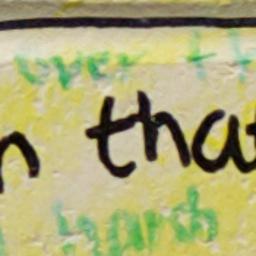 over th
n that
harsh